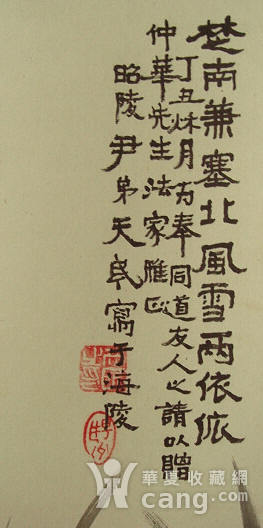 楚南兼塞北風雪兩依依
丁丑秌月為奉同道友人之請以贈
仲華先生法家雅正
昭陵尹弟天民寫于海陵
华夏收藏网
cang.com